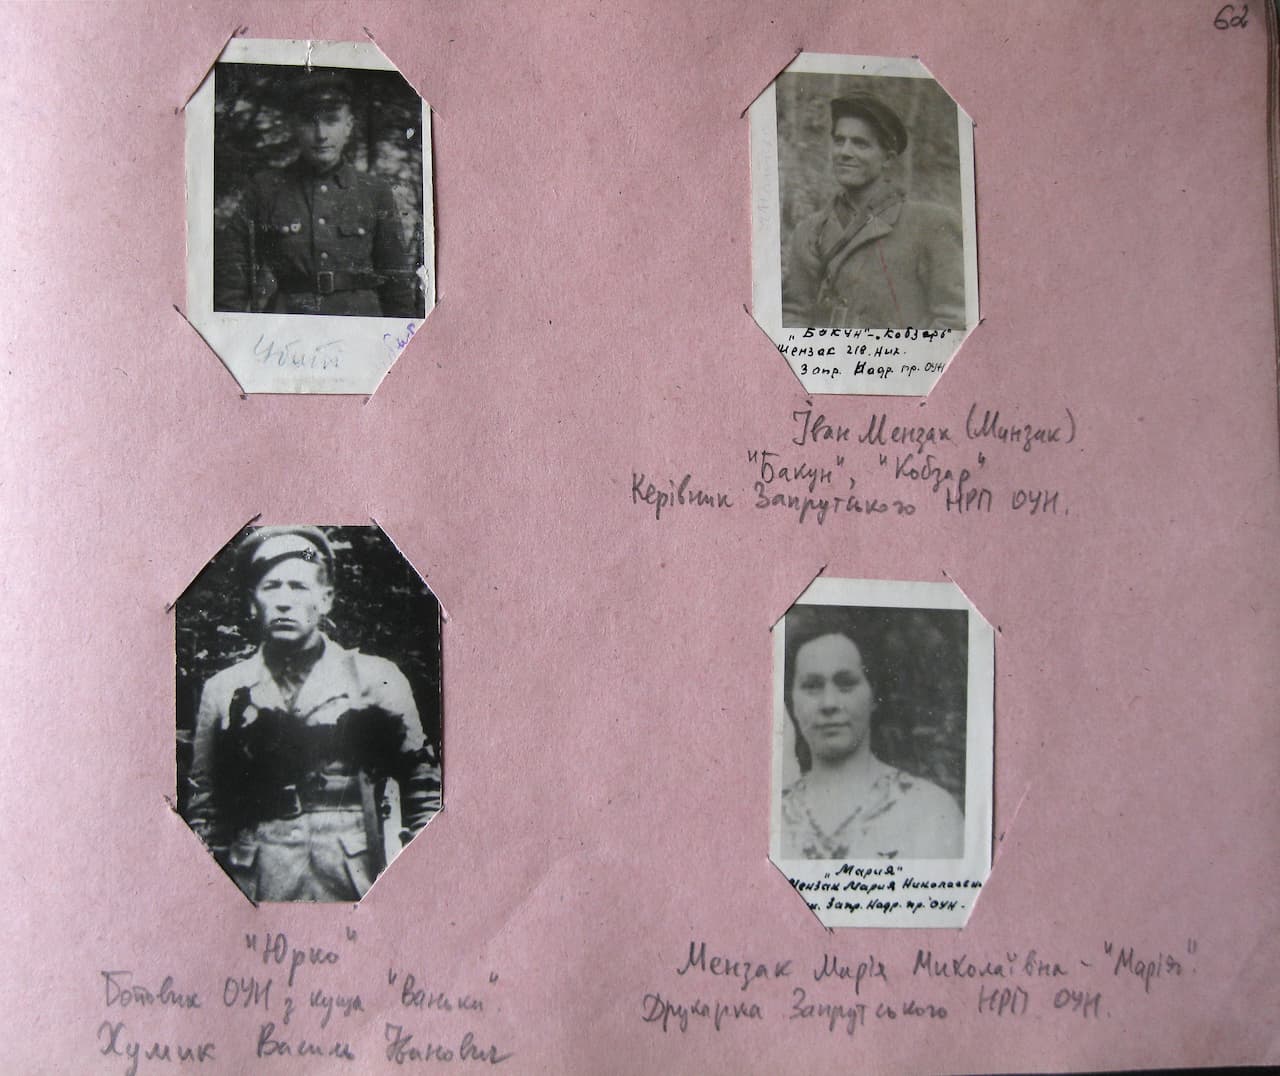 62
Убит
"Бакун"-"Кобзарь"
Мензак
Запр. Надр. пр. ОУН
Іван Мензак (Минзак)
"Бакун", "Кобзар"
Керівник Запрутського НРП ОУН.
"Мария"
Мензак Мария Николаевн
Запр. Надр. пр. ОУН.
"Юрко"
Боовик ОУН з куща "Ваньки".
Хумик Василь Іванович
Мензак Марія Миколаївна - "Марія".
Друкарка Запрутського НРП ОУН.